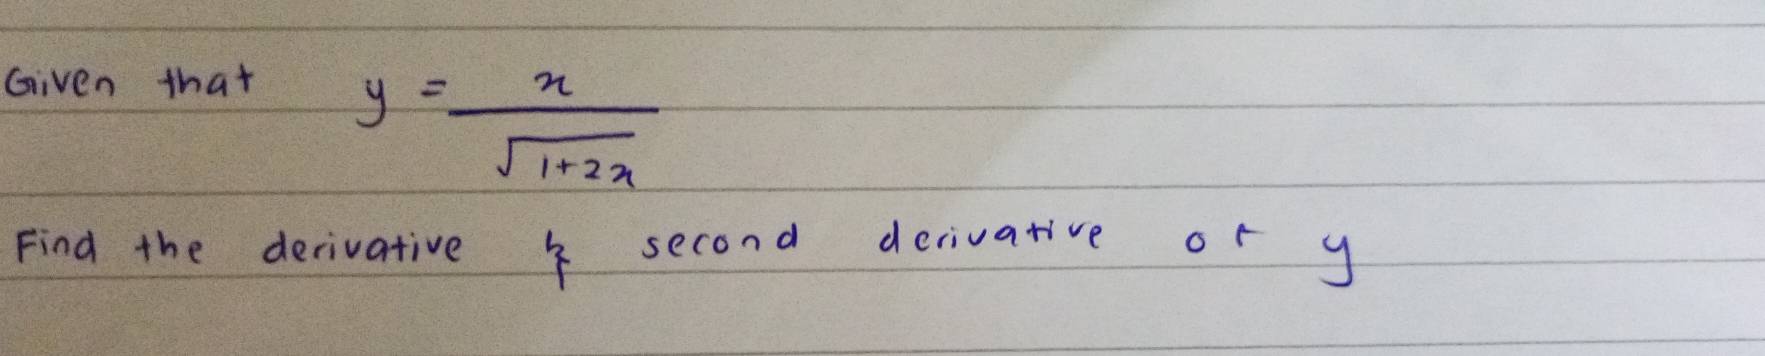 Given that y = x / √1+2x
Find the derivative & second derivative of y